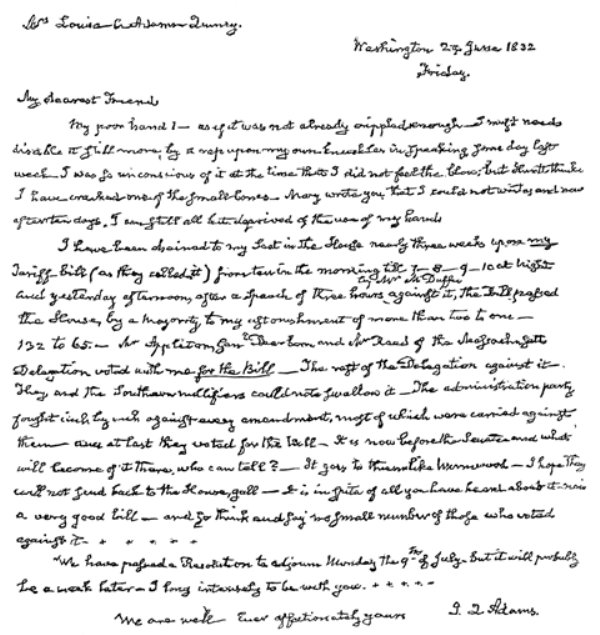 Mrs Louisa C. Adams Quincy.
Washington 29 June 1832
Friday.
My dearest Friend
My poor hand! — as if it was not already crippled enough — I must needs
disable it still more, by a rap upon my own knuckles in speaking some day last
week — I was so unconscious of it at the time that I did not feel the blow, but Huntt thinks
I have cracked one of the small bones — Mary wrote you that I could not write, and now
after ten days, I am still all but deprived of the use of my hand
I have been chained to my seat in the House nearly three weeks upon my
Tariff bill (as they called it) from ten in the morning till 7 — 8 — 9 — 10 at Night
by Mr McDuffie
and yesterday afternoon, after a speech of three hours against it, the Bill passed
the House, by a Majority to my astonishment of more than two to one —
132 to 65. — Mr Appleton, Genl Dearborn and Mr Reed of the Massachusetts
Delegation voted with me for the Bill — The rest of the Delegation against it —
They and the Southern nullifiers could not swallow it — The administration party
fought inch by inch against every amendment, most of which were carried against
them — and at last they voted for the Bill — It is now before the Senate and what
will become of it there, who can tell? — It goes to them like wormwood — I hope they
will not send back to the House, gall — It is in spite of all you have heard about it
a very good bill — and so think and say no small number of those who voted
against it — + + + + +
We have passed a Resolution to adjourn Monday the 9th of July. But it will probably
be a week later — I long intensely to be with you. + + + —
We are well Ever affectionately yours J. Q. Adams.